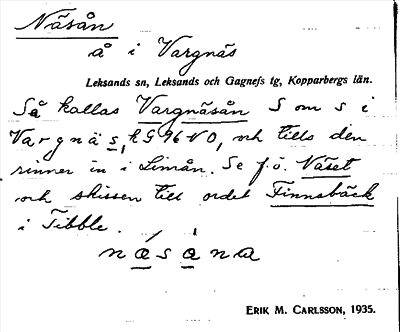 Näsån
å i Vargnäs
Leksands sn, Leksands och Gagnefs tg, Kopparbergs län.
Så kallas Vargnäsån S om s i
Vargnäs, k G 96 VO, och tills den
rinner in i Limån. Se f.ö. Näset
och skissen till ordet Finnsbäck
i Tibble.
næsåna
ERIK M. CARLSSON, 1935.